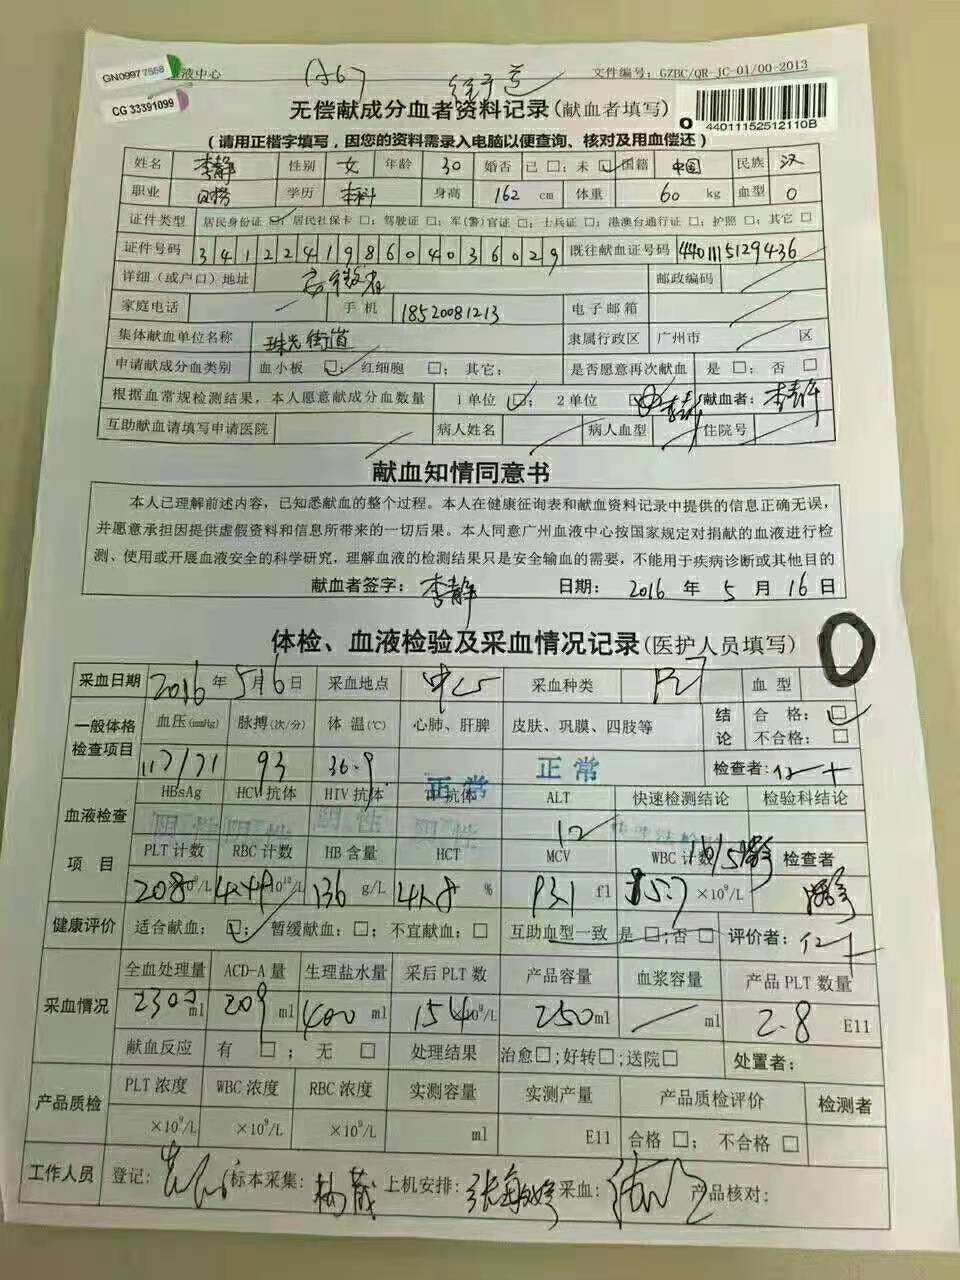 GN09977558
液中心
CG 33391099
文件编号：GZBC/QR-JC-01/00-2013
无偿献成分血者资料记录(献血者填写)
44011152512110B
（请用正楷字填写，因您的资料需录入电脑以便查询、核对及用血偿还）
姓名 李静 性别 女 年龄 30 婚否 已□；未☑ 国籍 中国 民族 汉
职业 学历 本科 身高 162 cm 体重 60 kg 血型 O
证件类型 居民身份证☑；居民社保卡□；驾驶证□；军(警)官证□；士兵证□；港澳台通行证□；护照□；其它□
证件号码 341224198604036029 既往献血证号码 4401115129436
详细（或户口）地址 安徽省 邮政编码
家庭电话 手机 18520081213 电子邮箱
集体献血单位名称 珠光街道 隶属行政区 广州市 区
申请献成分血类别 血小板☑；红细胞□；其它： 是否愿意再次献血 是□；否□
根据血常规检测结果，本人愿意献成分血数量 1单位☑；2单位 李静 献血者：李静
互助献血请填写申请医院 病人姓名 病人血型 住院号
献血知情同意书
本人已理解前述内容，已知悉献血的整个过程。本人在健康征询表和献血资料记录中提供的信息正确无误，
并愿意承担因提供虚假资料和信息所带来的一切后果。本人同意广州血液中心按国家规定对捐献的血液进行检
测、使用或开展血液安全的科学研究，理解血液的检测结果只是安全输血的需要，不能用于疾病诊断或其他目的
献血者签字：李静 日期：2016年5月16日
体检、血液检验及采血情况记录(医护人员填写)
O
采血日期 2016年5月6日 采血地点 中心 采血种类 血型
一般体格检查项目 血压(mmHg) 脉搏(次/分) 体温(℃) 心肺、肝脾 皮肤、巩膜、四肢等 结论 合格：☑
不合格：□
117/71 93 36.9 正常 正常 检查者：
血液检查项目 HBsAg HCV抗体 HIV抗体 抗体 ALT 快速检测结论 检验科结论
阴性 阴性 阴性 阴性 12
PLT计数 RBC计数 HB含量 HCT MCV WBC计数 检查者
208 ×10⁹/L 4.49 10¹²/L 136 g/L 41.8 % 93.1 fl 5.7 ×10⁹/L
健康评价 适合献血：☑；暂缓献血：□；不宜献血：□ 互助血型一致 是□；否□ 评价者：
采血情况 全血处理量 ACD-A量 生理盐水量 采后PLT数 产品容量 血浆容量 产品PLT数量
2302 ml 209 ml 400 ml 154 ×10⁹/L 250 ml ml 2.8 E11
献血反应 有□；无□ 处理结果 治愈□；好转□；送院□ 处置者：
产品质检 PLT浓度 WBC浓度 RBC浓度 实测容量 实测产量 产品质检评价 检测者
×10⁹/L ×10⁹/L ×10⁹/L ml E11 合格□；不合格□
工作人员 登记： 标本采集： 上机安排： 采血： 产品核对：